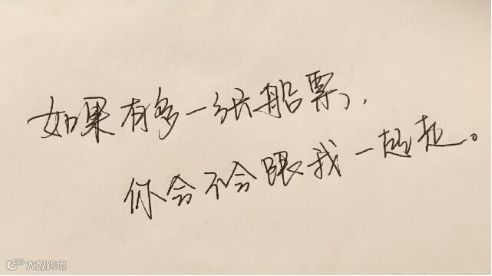 如果有多一张船票，
你会不会跟我一起走。
大数跨境